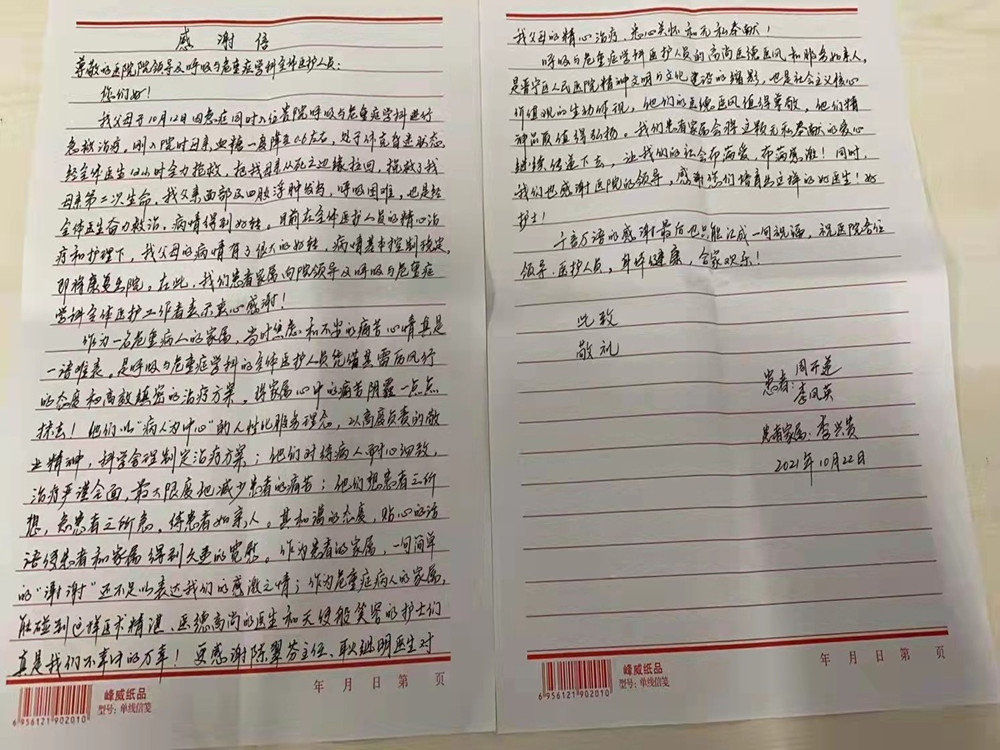 感谢信
尊敬的医院院领导及呼吸与危重症学科全体医护人员:
你们好!
我父母于10月12日因急症同时入住贵院呼吸与危重症学科进行
急救治疗,刚入院时母亲血糖一度降至0.6左右,处于休克昏迷状态
经全体医生12小时全力抢救,把我母亲从死亡边缘拉回,挽救了我
母亲第二次生命。我父亲面部及四肢浮肿发乌,呼吸困难,也是经
全体医生奋力救治,病情得到好转。目前在全体医护人员的精心治
疗和护理下,我父母的病情有了很大的好转,病情基本控制稳定,
即将康复出院。在此,我们患者家属向院领导及呼吸与危重症
学科全体医护工作者表示衷心感谢!
作为一名危重病人的家属,当时焦虑和不安的痛苦心情真是
一语难表。是呼吸与危重症学科的全体医护人员凭借其雷厉风行
的态度和高效缜密的治疗方案,将家属心中的痛苦阴霾一点点
抹去!他们以“病人为中心”的人性化服务理念,以高度负责的敬
业精神,科学合理制定治疗方案;他们对待病人耐心细致,
治疗严谨全面,最大限度地减少患者的痛苦;他们想患者之所
想,急患者之所急,待患者如亲人。其和谒的态度,贴心的话
语使患者和家属得到久违的宽慰。作为患者的家属,一句简单
的“谢谢”还不足以表达我们的感激之情;作为危重症病人的家属,
能碰到这样医术精湛、医德高尚的医生和天使般笑容的护士们
真是我们不幸中的万幸!更感谢陈翠芬主任、耿继明医生对
峰威纸品
型号:单线信笺
6 956121 902010
年 月 日 第 页
我父母的精心治疗、悉心关怀和无私奉献!
呼吸与危重症学科医护人员的高尚医德医风和服务如亲人,
是晋宁区人民医院精神文明与文化建设的缩影,也是社会主义核心
价值观的生动体现,他们的医德医风值得尊敬,他们精
神品质值得弘扬。我们患者家属会将这颗无私奉献的爱心
继续传递下去,让我们的社会布满爱、布满恩泽!同时,
我们也感谢医院的领导,感谢您们培育出这样的好医生!好
护士!
千言万语的感谢最后也只能汇成一句祝福,祝医院各位
领导、医护人员,身体健康,合家欢乐!
此致
敬礼
患者:周开莲
李凤英
患者家属:李兴贵
2021年10月22日
峰威纸品
型号:单线信笺
6 956121 902010
年 月 日 第 页